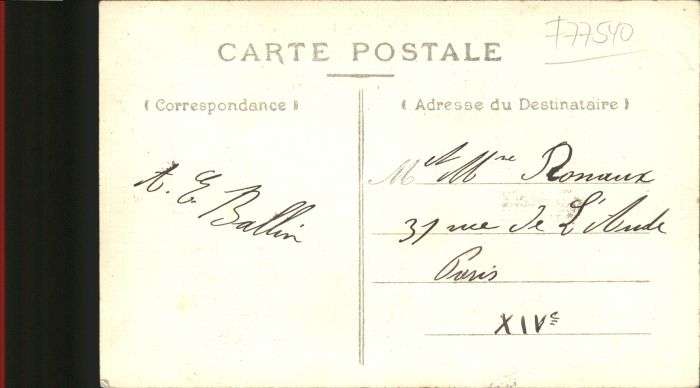 F77540
CARTE POSTALE
( Correspondance )
( Adresse du Destinataire )
A. E. Ballin
M et Mme
rue de L'Aude
Paris
XIVe